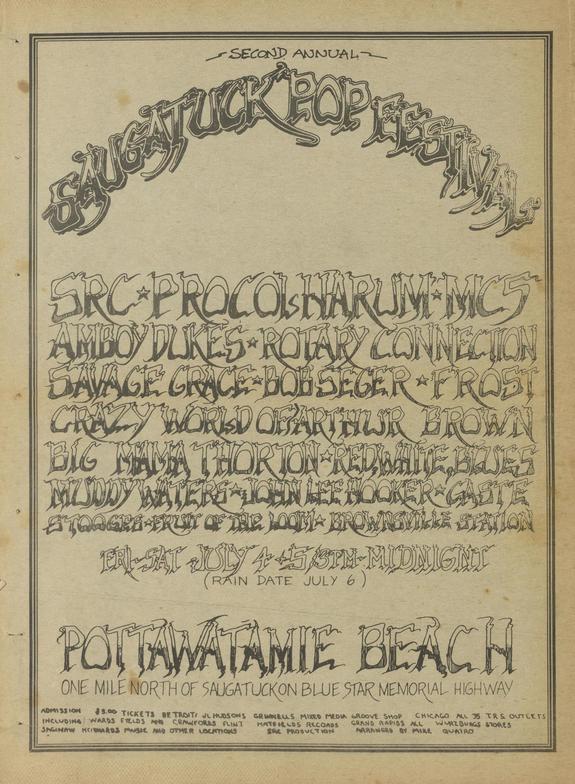 SECOND ANNUAL
SAUGATUCK POP FESTIVAL
SRC ★ PROCOL HARUM ★ MC5
AMBOY DUKES ★ ROTARY CONNECTION
SAVAGE GRACE ★ BOB SEGER ★ FROST
CRAZY WORLD OF ARTHUR BROWN
BIG MAMA THORTON ★ RED, WHITE, BLUES
MUDDY WATERS ★ JOHN LEE HOOKER ★ CASTE
STOOGES ★ FRUIT OF THE LOOM ★ BROWNSVILLE STATION
FRI-SAT JULY 4 + 5 / 3PM-MIDNIGHT
(RAIN DATE JULY 6)
POTTAWATAMIE BEACH
ONE MILE NORTH OF SAUGATUCK ON BLUE STAR MEMORIAL HIGHWAY
ADMISSION TICKETS DETROIT: JL HUDSONS GRINNELLS MIXED MEDIA GROOVE SHOP CHICAGO ALL 35 T.R.S. OUTLETS
INCLUDING: WARDS FIELDS AND CRAWFORDS FLINT HATFIELDS RECORDS GRAND RAPIDS ALL WURZBURGS STORES
SAGINAW MUSIC AND OTHER LOCATIONS SRC PRODUCTION ARRANGED BY MIKE QUATRO